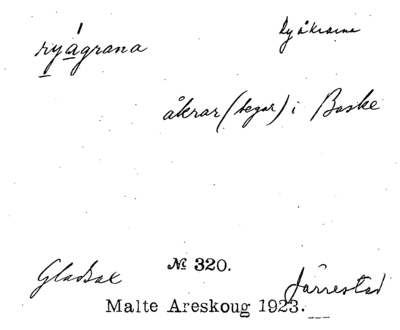 ryågrana Ryåkrarna
åkrar (tegar) i Baske
№ 320.
Gladsax Järrestad
Malte Areskoug 1923.